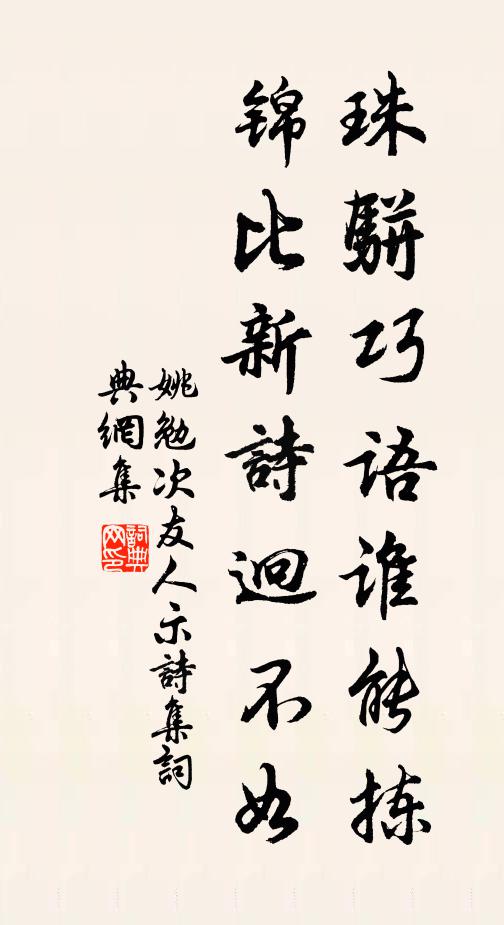 珠駢巧语谁能拣
锦比新詩迥不如
姚勉次友人示詩集詞
典網集
詞典网印